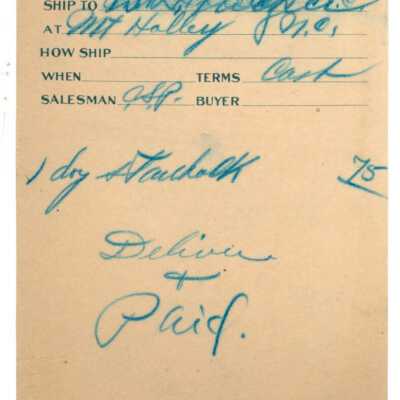 SHIP TO
AT Mt Holley N.C.
HOW SHIP
WHEN TERMS Cash
SALESMAN C.S.P. BUYER
1 doz 75
Deliver
+
Paid.